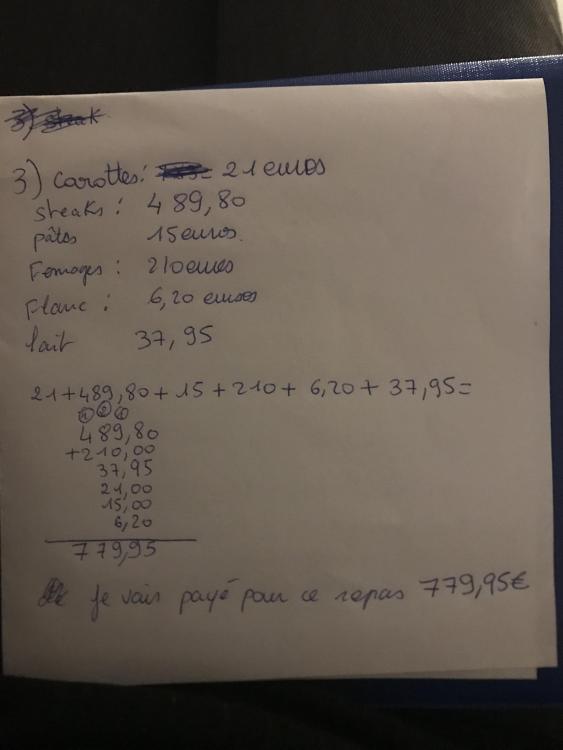 3) Carottes: 21 euros
steaks : 489,80
pâtes 15 euros.
Fromages : 210 euros
Flanc : 6,20 euros
lait 37,95
21+489,80+15+210+6,20+37,95=
① ② ①
489,80
+210,00
37,95
21,00
15,00
6,20
779,95
Je vais payé pour ce repas 779,95€